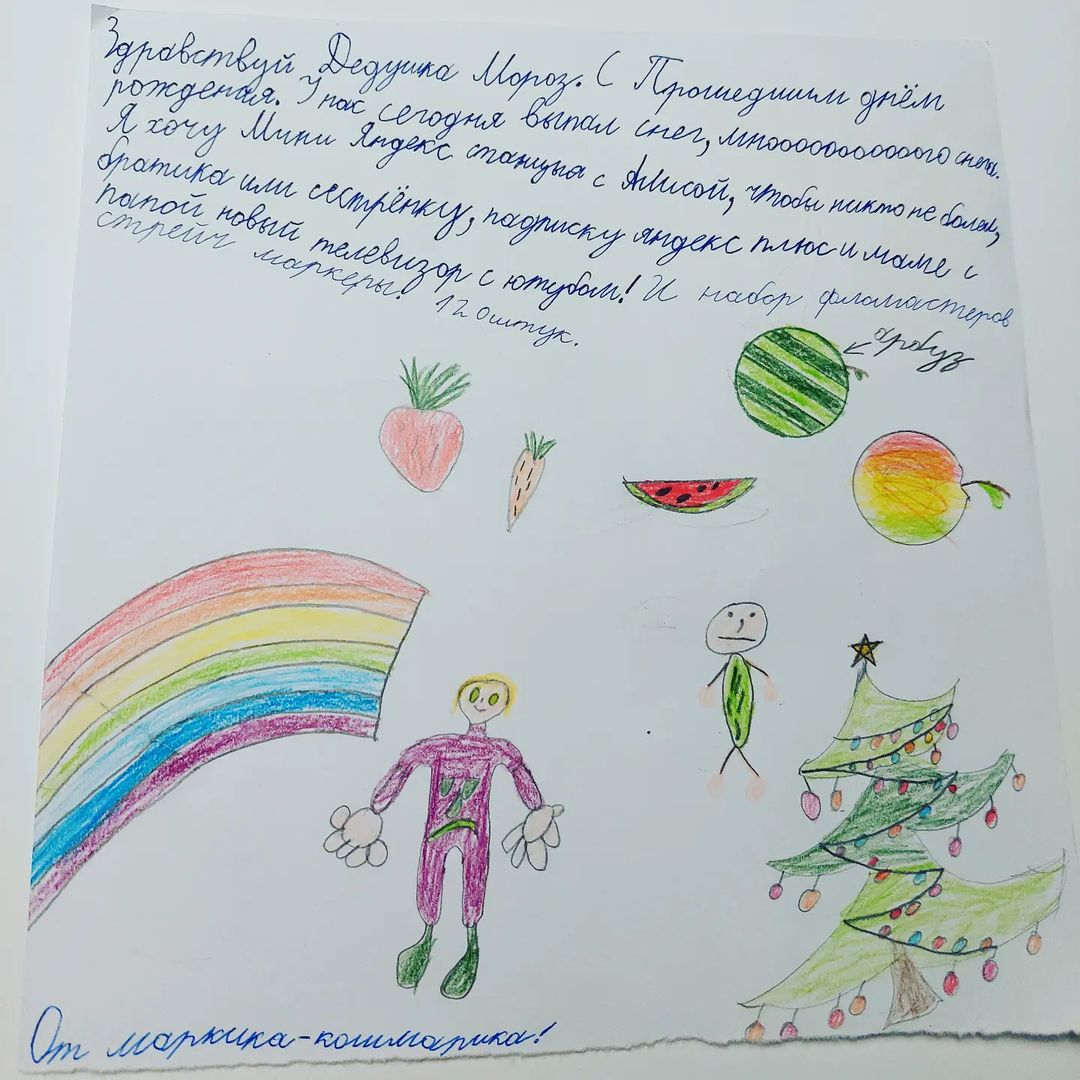 Здравствуй Дедушка Мороз. С Прошедшим днём
рождения. У нас сегодня выпал снег, мнооооооооооого снега.
Я хочу Мини Яндекс станцыя с Алисой, чтобы никто не болел,
братика или сестрёнку, падписку яндекс плюс и маме с
папой новый телевизор с ютубом! И набор фломастеров
стрейч маркеры! 120штук.
арбуз
От маркика-кошмарика!